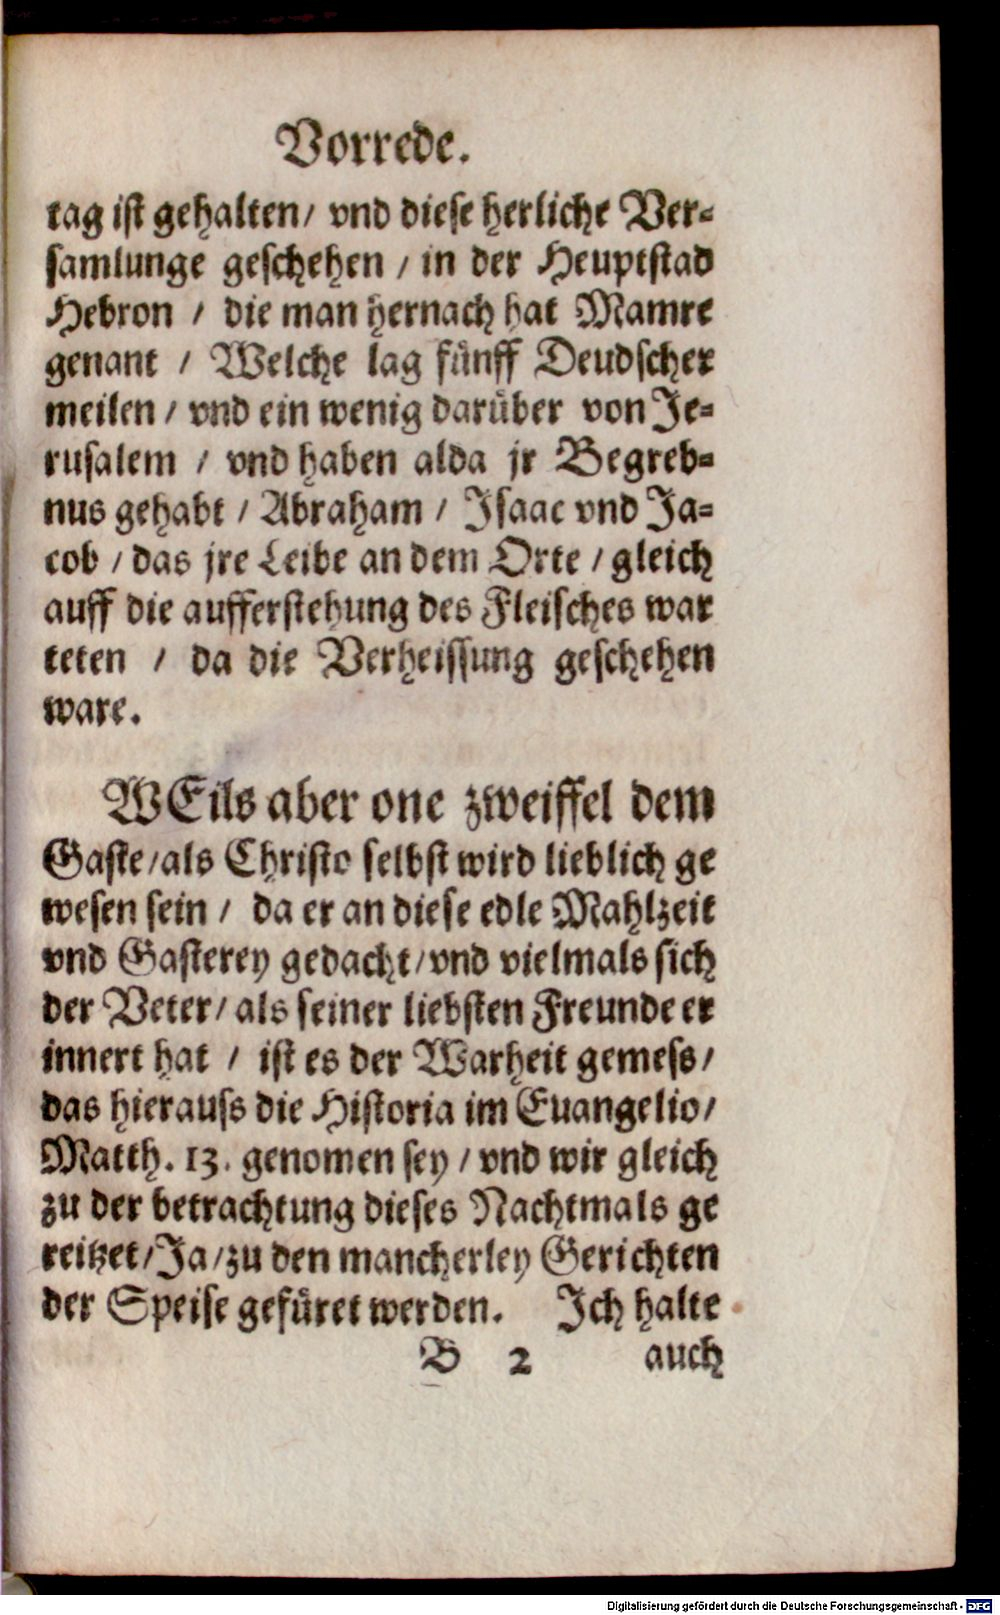 Vorrede.
tag ist gehalten/ vnd diese herliche Ver-
samlunge geschehen / in der Heuptstad
Hebron / die man hernach hat Mamre
genant / Welche lag fünff Deudscher
meilen / vnd ein wenig darüber von Je-
rusalem / vnd haben alda jr Begreb-
nus gehabt / Abraham / Isaac vnd Ja-
cob / das jre Leibe an dem Orte / gleich
auff die aufferstehung des Fleisches war
teten / da die Verheissung geschehen
ware.
WEils aber one zweiffel dem
Gaste/als Christo selbst wird lieblich ge
wesen sein / da er an diese edle Mahlzeit
vnd Gasterey gedacht/vnd vielmals sich
der Veter/ als seiner liebsten Freunde er
innert hat / ist es der Warheit gemess/
das hierauss die Historia im Euangelio/
Matth. 13. genomen sey / vnd wir gleich
zu der betrachtung dieses Nachtmals ge
reitzet/Ja/zu den mancherley Gerichten
der Speise gefüret werden. Ich halte
B 2 auch
Digitalisierung gefördert durch die Deutsche Forschungsgemeinschaft - DFG